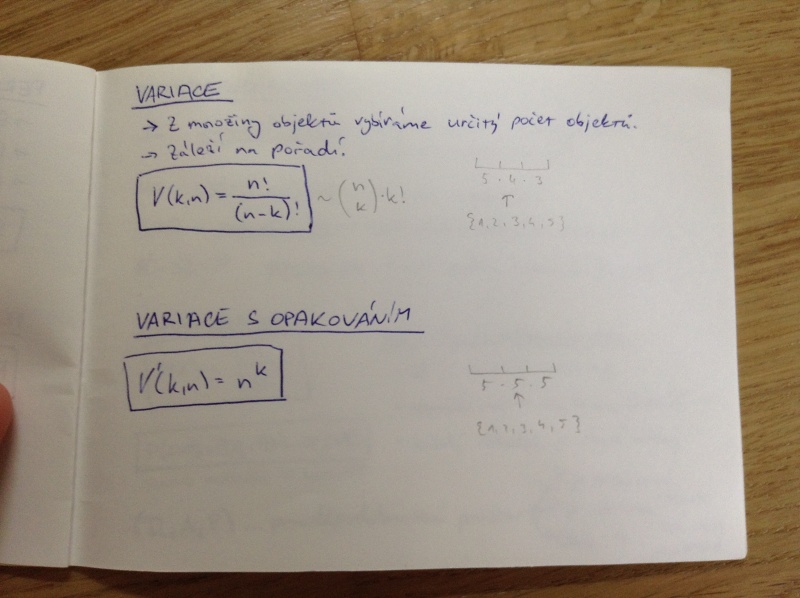 VARIACE
→ Z množiny objektů vybíráme určitý počet objektů.
→ Záleží na pořadí!
V(k,n) = n! / (n-k)! ~ (n k) · k!
5 · 4 · 3
↑
{1,2,3,4,5}
VARIACE S OPAKOVÁNÍM
V'(k,n) = n^k
5 · 5 · 5
↑
{1,2,3,4,5}